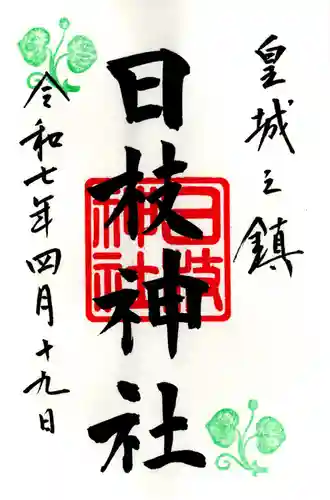 皇城之鎮
日枝神社
日枝神社
令和七年四月十九日